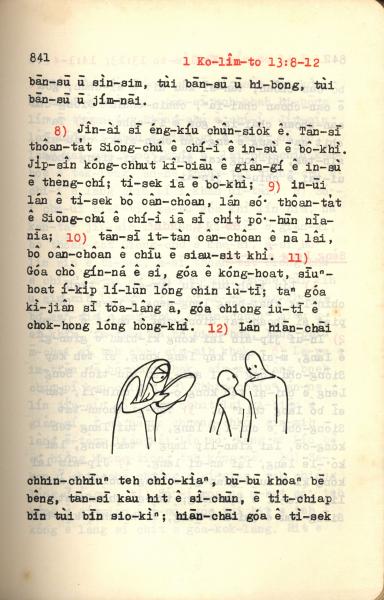 841
1 Ko-lîm-to 13:8-12
bān-sū ū sìn-sim, tùi bān-sū ū hi-bōng, tùi
bān-sū ū jím-nāi.
8) Jîn-ài sī éng-kíu chun-siók ê. Tān-sī
thoân-ta̍t Siōng-chú ê chí-ì ê in-sù ē bô-khì.
Ji̍p-sîn kóng-chhut kî-biāu ê giân-gí ê in-sù
ē thêng-chí; tì-sek iā ē bô-khì; 9) in-ūi
lán ê tì-sek bô oân-choân, lán só͘ thoân-ta̍t
ê Siōng-chú ê chí-ì iā sī chi̍t pō͘-hūn niā-
niā; 10) tān-sī it-tàn oân-choân ê nā lâi,
bô oân-choân ê chīu ē siau-sit khì. 11)
Góa chò gín-ná ê sî, góa ê kóng-hoat, sīuⁿ-
hoat í-ki̍p lí-lūn lóng chin iù-tī; taⁿ góa
kì-jiân sī tōa-lâng ā, góa chiong iù-tī ê
chok-hong lóng hòng-khì. 12) Lán hiān-chāi
chhin-chhīuⁿ teh chiò-kiàⁿ, bū-bū khòaⁿ bē
bêng, tān-sī kàu hit ê sî-chūn, ē ti̍t-chiap
bīn tùi bīn sio-kìⁿ; hiān-chāi góa ê tì-sek